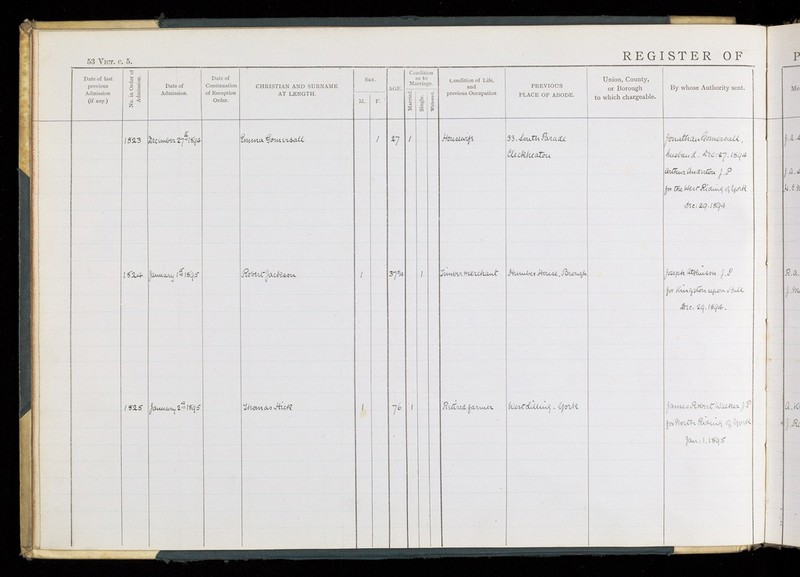 53 Vict. c. 5.
REGISTER OF
Date of last previous Admission (if any.)
No. in Order of Admission.
Date of Admission.
Date of Continuation of Reception Order.
CHRISTIAN AND SURNAME AT LENGTH.
Sex.
M. F.
AGE.
Condition as to Marriage.
Married. Single. Widowed.
Condition of Life, and previous Occupation
PREVIOUS PLACE OF ABODE.
Union, County, or Borough to which chargeable.
By whose Authority sent.
1823 December 27th 1894 Emma Gomersall / 27 / Housewife 33. South Parade Jonathan Gomersall,
Cleckheaton husband. Dec: 27. 1894
J.P
for the West Riding of York
Dec: 29. 1894
1824 January 1st 1895 Robert Jackson / 37 / Timber merchant Humber House, Brough Joseph Atkinson J.P
for Kingston upon Hull
Dec. 29. 1894.
1825 January 2nd 1895 Thomas Hick / 76 / Retired farmer West Lilling. York James Robert Walker J.P
for North Riding of York
Jan: 1. 1895